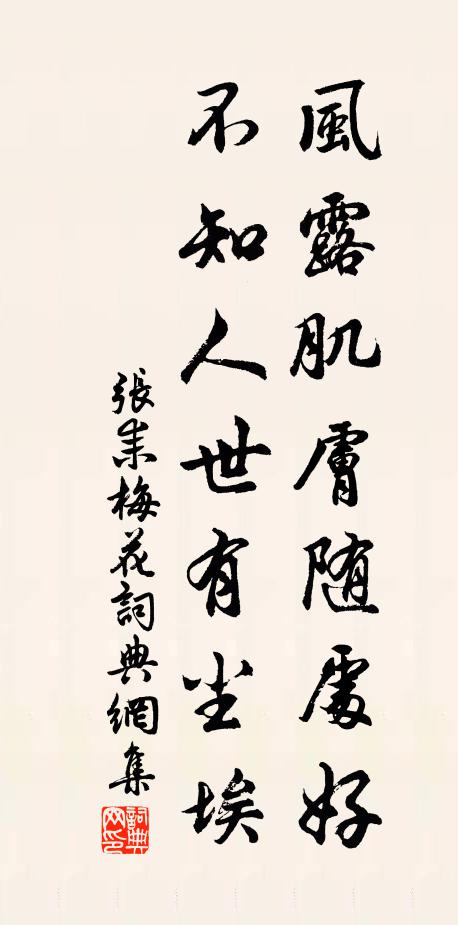 風露肌膚随處好
不知人世有尘埃
張耒梅花詞典網集
詞典網印